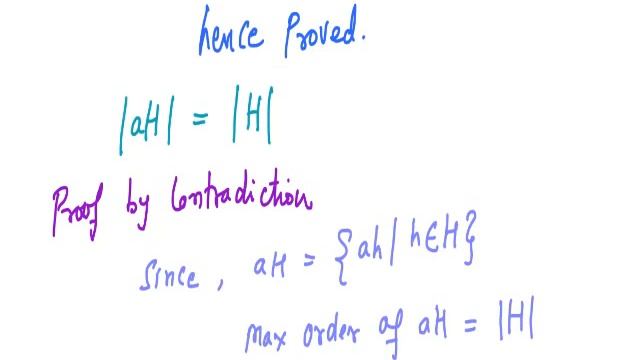 hence Proved.
|aH| = |H|
Proof by Contradiction
Since, aH = {ah / h∈H}
Max order of aH = |H|